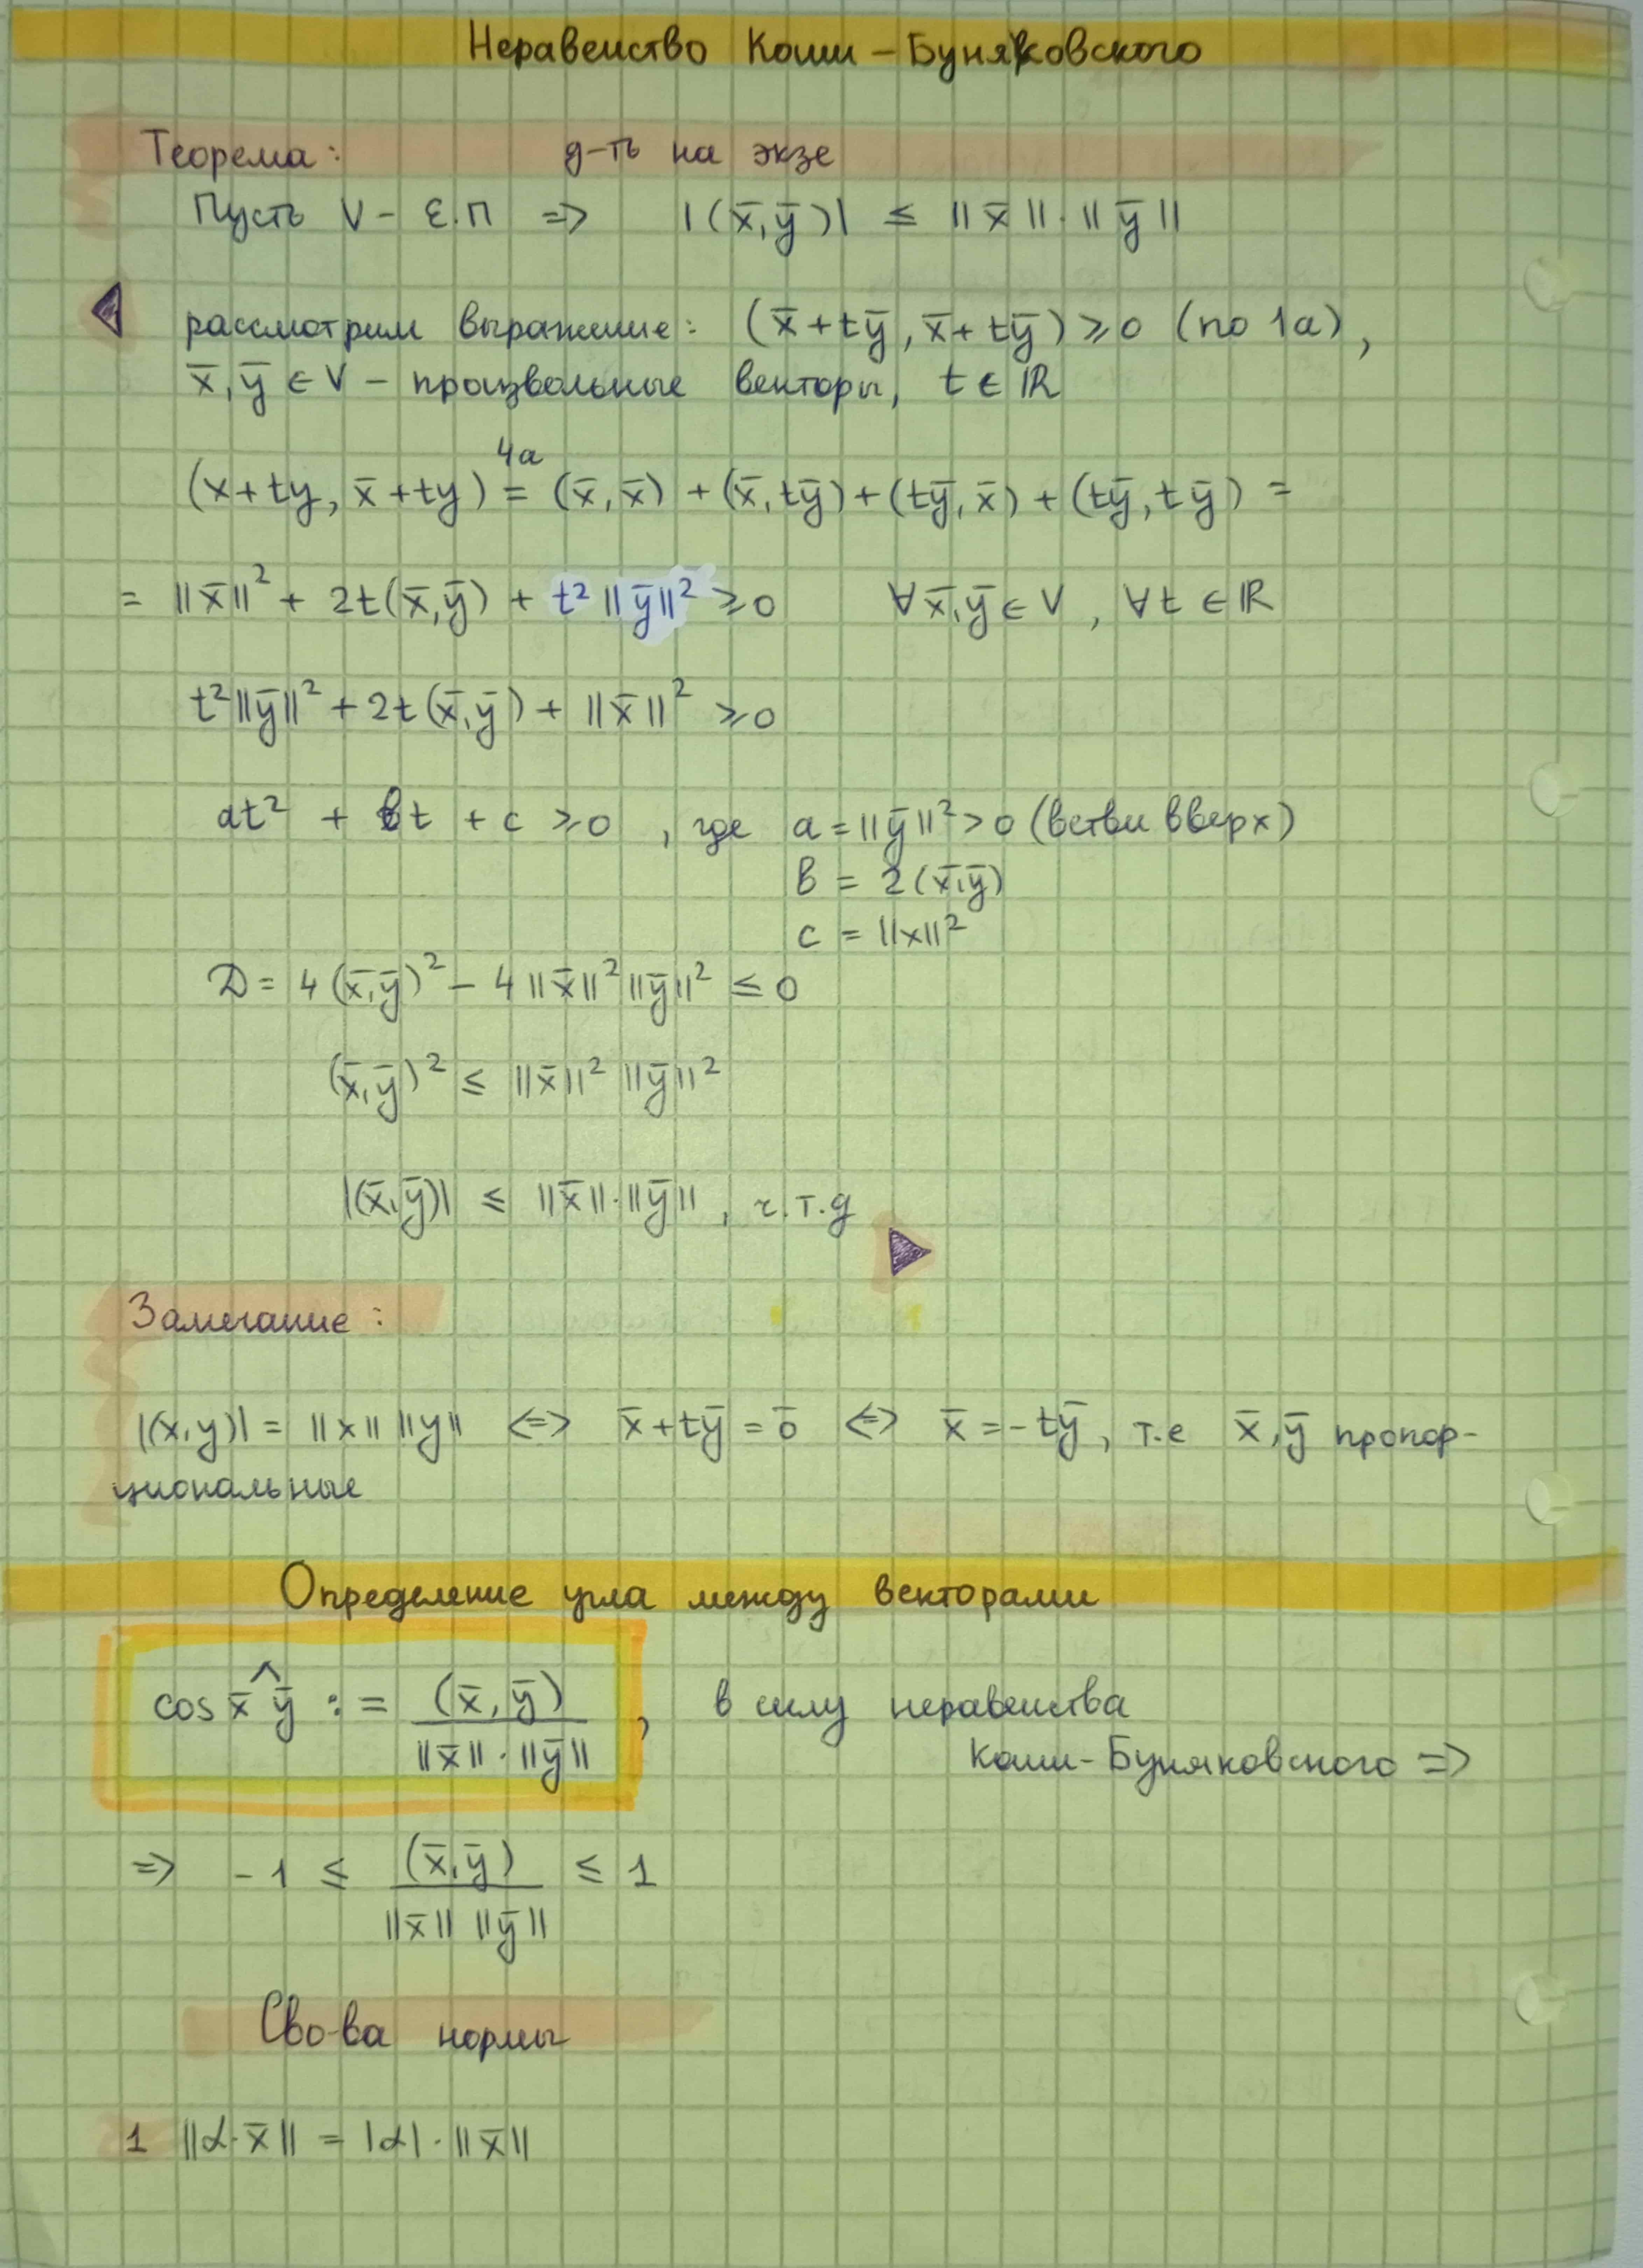 Неравенство Коши – Буняковского
Теорема: д-ть на экзе
Пусть V – Е.П => |(x̄,ȳ)| ≤ ||x̄||·||ȳ||
рассмотрим выражение: (x̄+tȳ, x̄+tȳ) ≥ 0 (по 1a),
x̄,ȳ ∈ V – произвольные векторы, t ∈ ℝ
4a
(x+ty, x̄+ty) = (x̄,x̄) + (x̄,tȳ) + (tȳ,x̄) + (tȳ,tȳ) =
= ||x̄||² + 2t(x̄,ȳ) + t²||ȳ||² ≥ 0 ∀x̄,ȳ ∈ V, ∀t ∈ ℝ
t²||ȳ||² + 2t(x̄,ȳ) + ||x̄||² ≥ 0
at² + bt + c ≥ 0, где a = ||ȳ||² > 0 (ветви вверх)
b = 2(x̄,ȳ)
c = ||x||²
D = 4(x̄,ȳ)² – 4||x̄||²||ȳ||² ≤ 0
(x̄,ȳ)² ≤ ||x̄||² ||ȳ||²
|(x̄,ȳ)| ≤ ||x̄||·||ȳ||, ч.т.д
Замечание:
|(x,y)| = ||x|| ||y|| <=> x̄+tȳ = 0̄ <=> x̄ = –tȳ, т.е x̄,ȳ пропор-
циональные
Определение угла между векторами
cos x̄^ȳ := (x̄,ȳ) / ||x̄||·||ȳ||, в силу неравенства
Коши-Буняковского =>
=> –1 ≤ (x̄,ȳ) / ||x̄|| ||ȳ|| ≤ 1
Сво-ва нормы
1 ||α·x̄|| = |α|·||x̄||